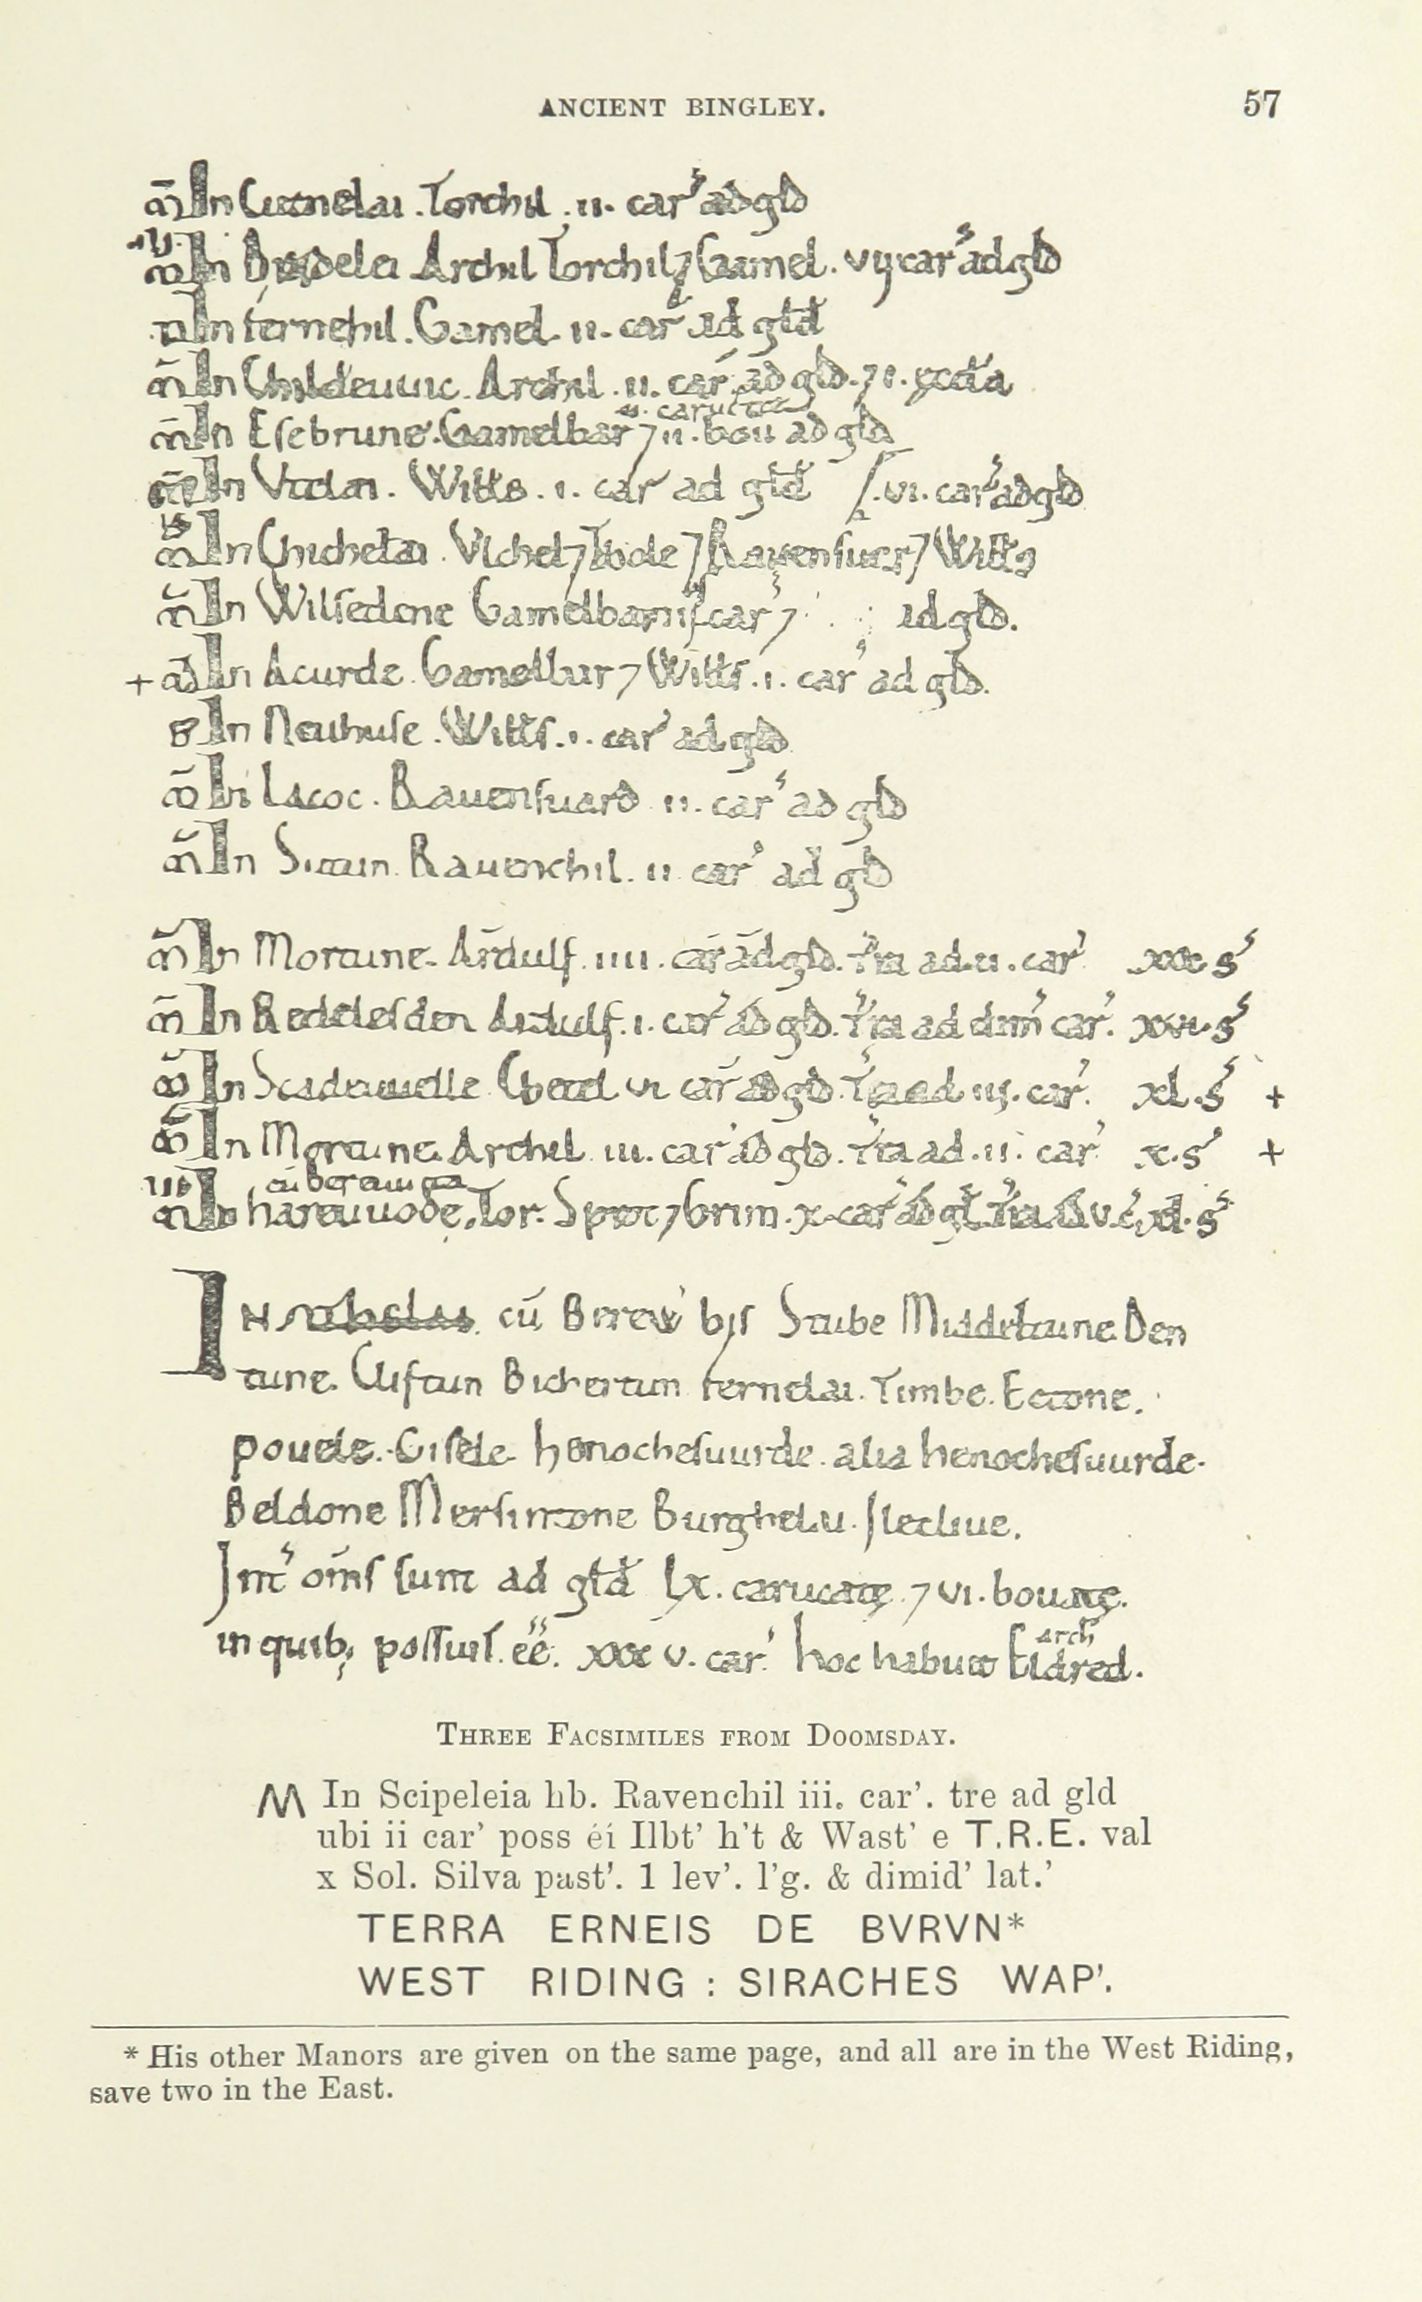 ANCIENT BINGLEY. 57
m̄ In Cutnelai . Torchil . ii . car' ad gld
In Archil Torchil ⁊ Gamel . vij car' ad gld
In fernehil . Gamel . ii . car' ad gld
m̄ In Childeuuic . Archil . ii . car' ad gld . ⁊ i .
m̄ In Esebrune . Gamelbar ⁊ ii . bou ad gld
ii . carucatæ
In . Witts . i . car ad gld . vi . car' ad gld
m̄ In Chichelai . Vlchel ⁊ Thole ⁊ Rauensuar ⁊ Witts
m̄ In Wilsedene Gamelbar iij car' ⁊ ad gld .
+ In Acurde . Gamelbar ⁊ Witts . i . car' ad gld .
B In Neuhuse . Witts . i . car' ad gld
m̄ In Lacoc . Rauensuard ii . car' ad gld
m̄ In Sutun . Rauenchil . ii car' ad gld
m̄ In Mortune . Ardulf . iiii . car' ad gld . t'ra ad . ii . car' xxx s'
m̄ In Redelesden Ardulf . i . car' ad gld . t'ra ad dim' car' . xvi . s'
m̄ In vi car' ad gld . t'ra ad iij . car' . xl . s' +
m̄ In Mortune . Archil . iii . car' ad gld . t'ra ad . ii . car' x . s' +
cū bereuuita
In hateuuode . Tor . Sprot ⁊ Grim . x . car' ad gl . t'ra ad v . c' xl . s'
IN cū Berew' his Stube Middeltune Den
tune . Cliftun Bichertun fernelai . Timbe . Ectone .
pouele . Gisele henochesuurde . alia henochesuurde .
Beldone Mersintone Burghelai . Ilecliue .
Int' om̄s sunt ad gld lx . carucatę ⁊ vi . bouatę .
in quib; possunt . eē . xxx v . car' hoc habuit Eldred .
arch
THREE FACSIMILES FROM DOOMSDAY.
M In Scipeleia hb. Ravenchil iii. car'. tre ad gld
ubi ii car' poss éí Ilbt' h't & Wast' e T.R.E. val
x Sol. Silva past'. 1 lev'. l'g. & dimid' lat.'
TERRA ERNEIS DE BVRVN*
WEST RIDING : SIRACHES WAP'.
* His other Manors are given on the same page, and all are in the West Riding,
save two in the East.